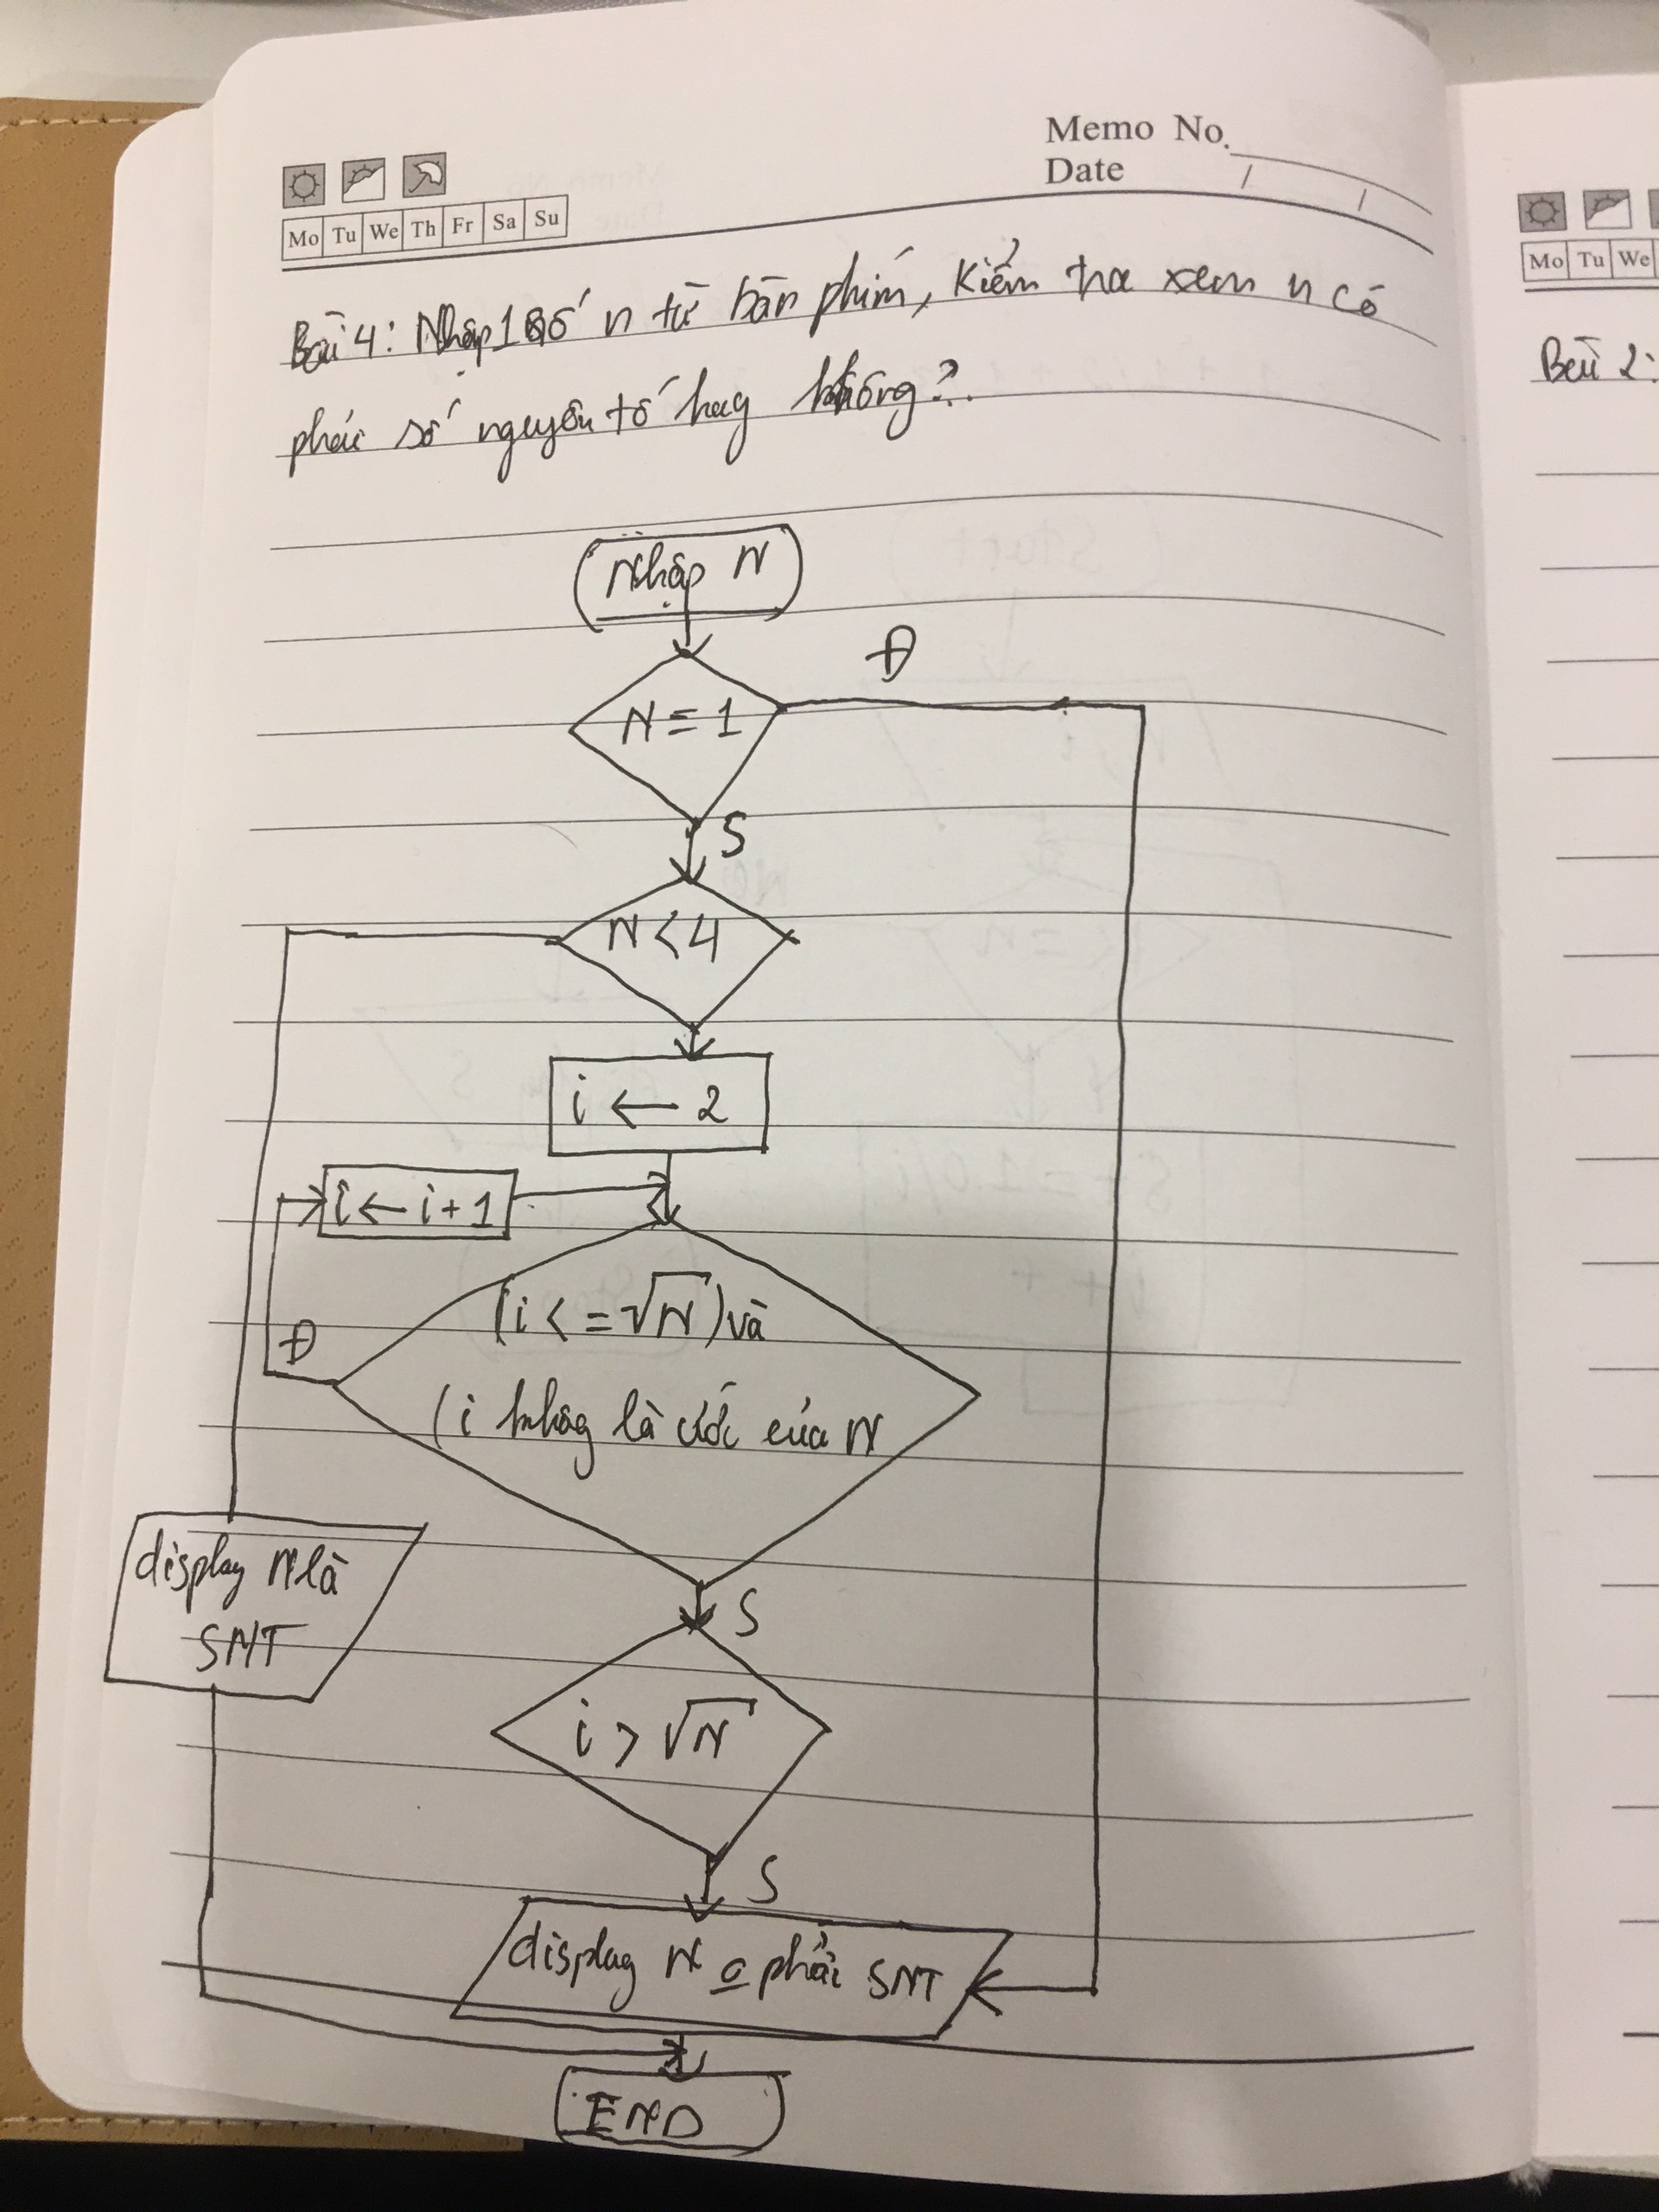 Memo No.
Date / /
Mo Tu We Th Fr Sa Su
Mo Tu We
Bài 4: Nhập 1 số n từ bàn phím, kiểm tra xem n có
phải số nguyên tố hay không?
Bài 2:
Nhập N
Đ
N = 1
S
N < 4
i ← 2
i ← i + 1
(i < = √N) và
Đ
(i không là ước của N
display N là
SNT
S
i > √N
S
display N o phải SNT
END